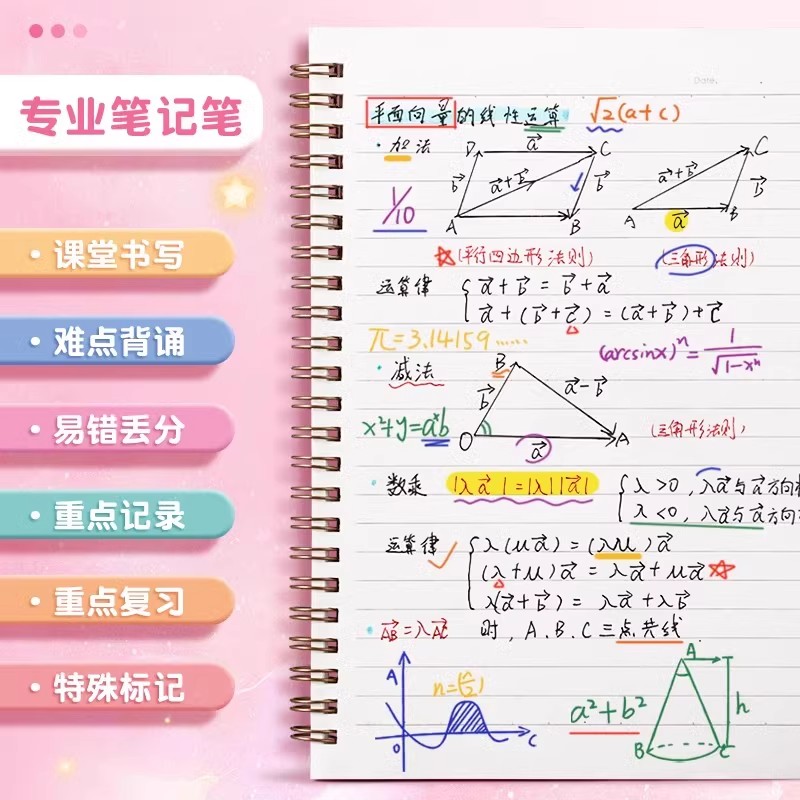 专业笔记笔
• 课堂书写
• 难点背诵
• 易错丢分
• 重点记录
• 重点复习
• 特殊标记
Date.
平面向量的线性运算 √2(a+c)
• 加法
D a⃗ C
b⃗ a⃗+b⃗ b⃗
A B
1/10
C
a⃗+b⃗ b⃗
A a⃗ B
☆(平行四边形法则) (三角形法则)
运算律 { a⃗+b⃗=b⃗+a⃗
a⃗+(b⃗+c⃗)=(a⃗+b⃗)+c⃗
π=3.14159……
(arcsinx)ⁿ=1/√(1-xⁿ)
• 减法
B
b⃗ a⃗-b⃗
O a⃗ A
x²+y=aˣb
(三角形法则)
• 数乘 |λa⃗|=|λ||a⃗| { λ>0, λa⃗与a⃗方向
λ<0, λa⃗与a⃗方向
运算律 ✓ { λ(μa⃗)=(λμ)a⃗
(λ+μ)a⃗=λa⃗+μa⃗ ☆
λ(a⃗+b⃗)=λa⃗+λb⃗
• AB⃗=λAC⃗ 时, A.B.C三点共线.
A
n=
0 C
a²+b²
A
h
B C